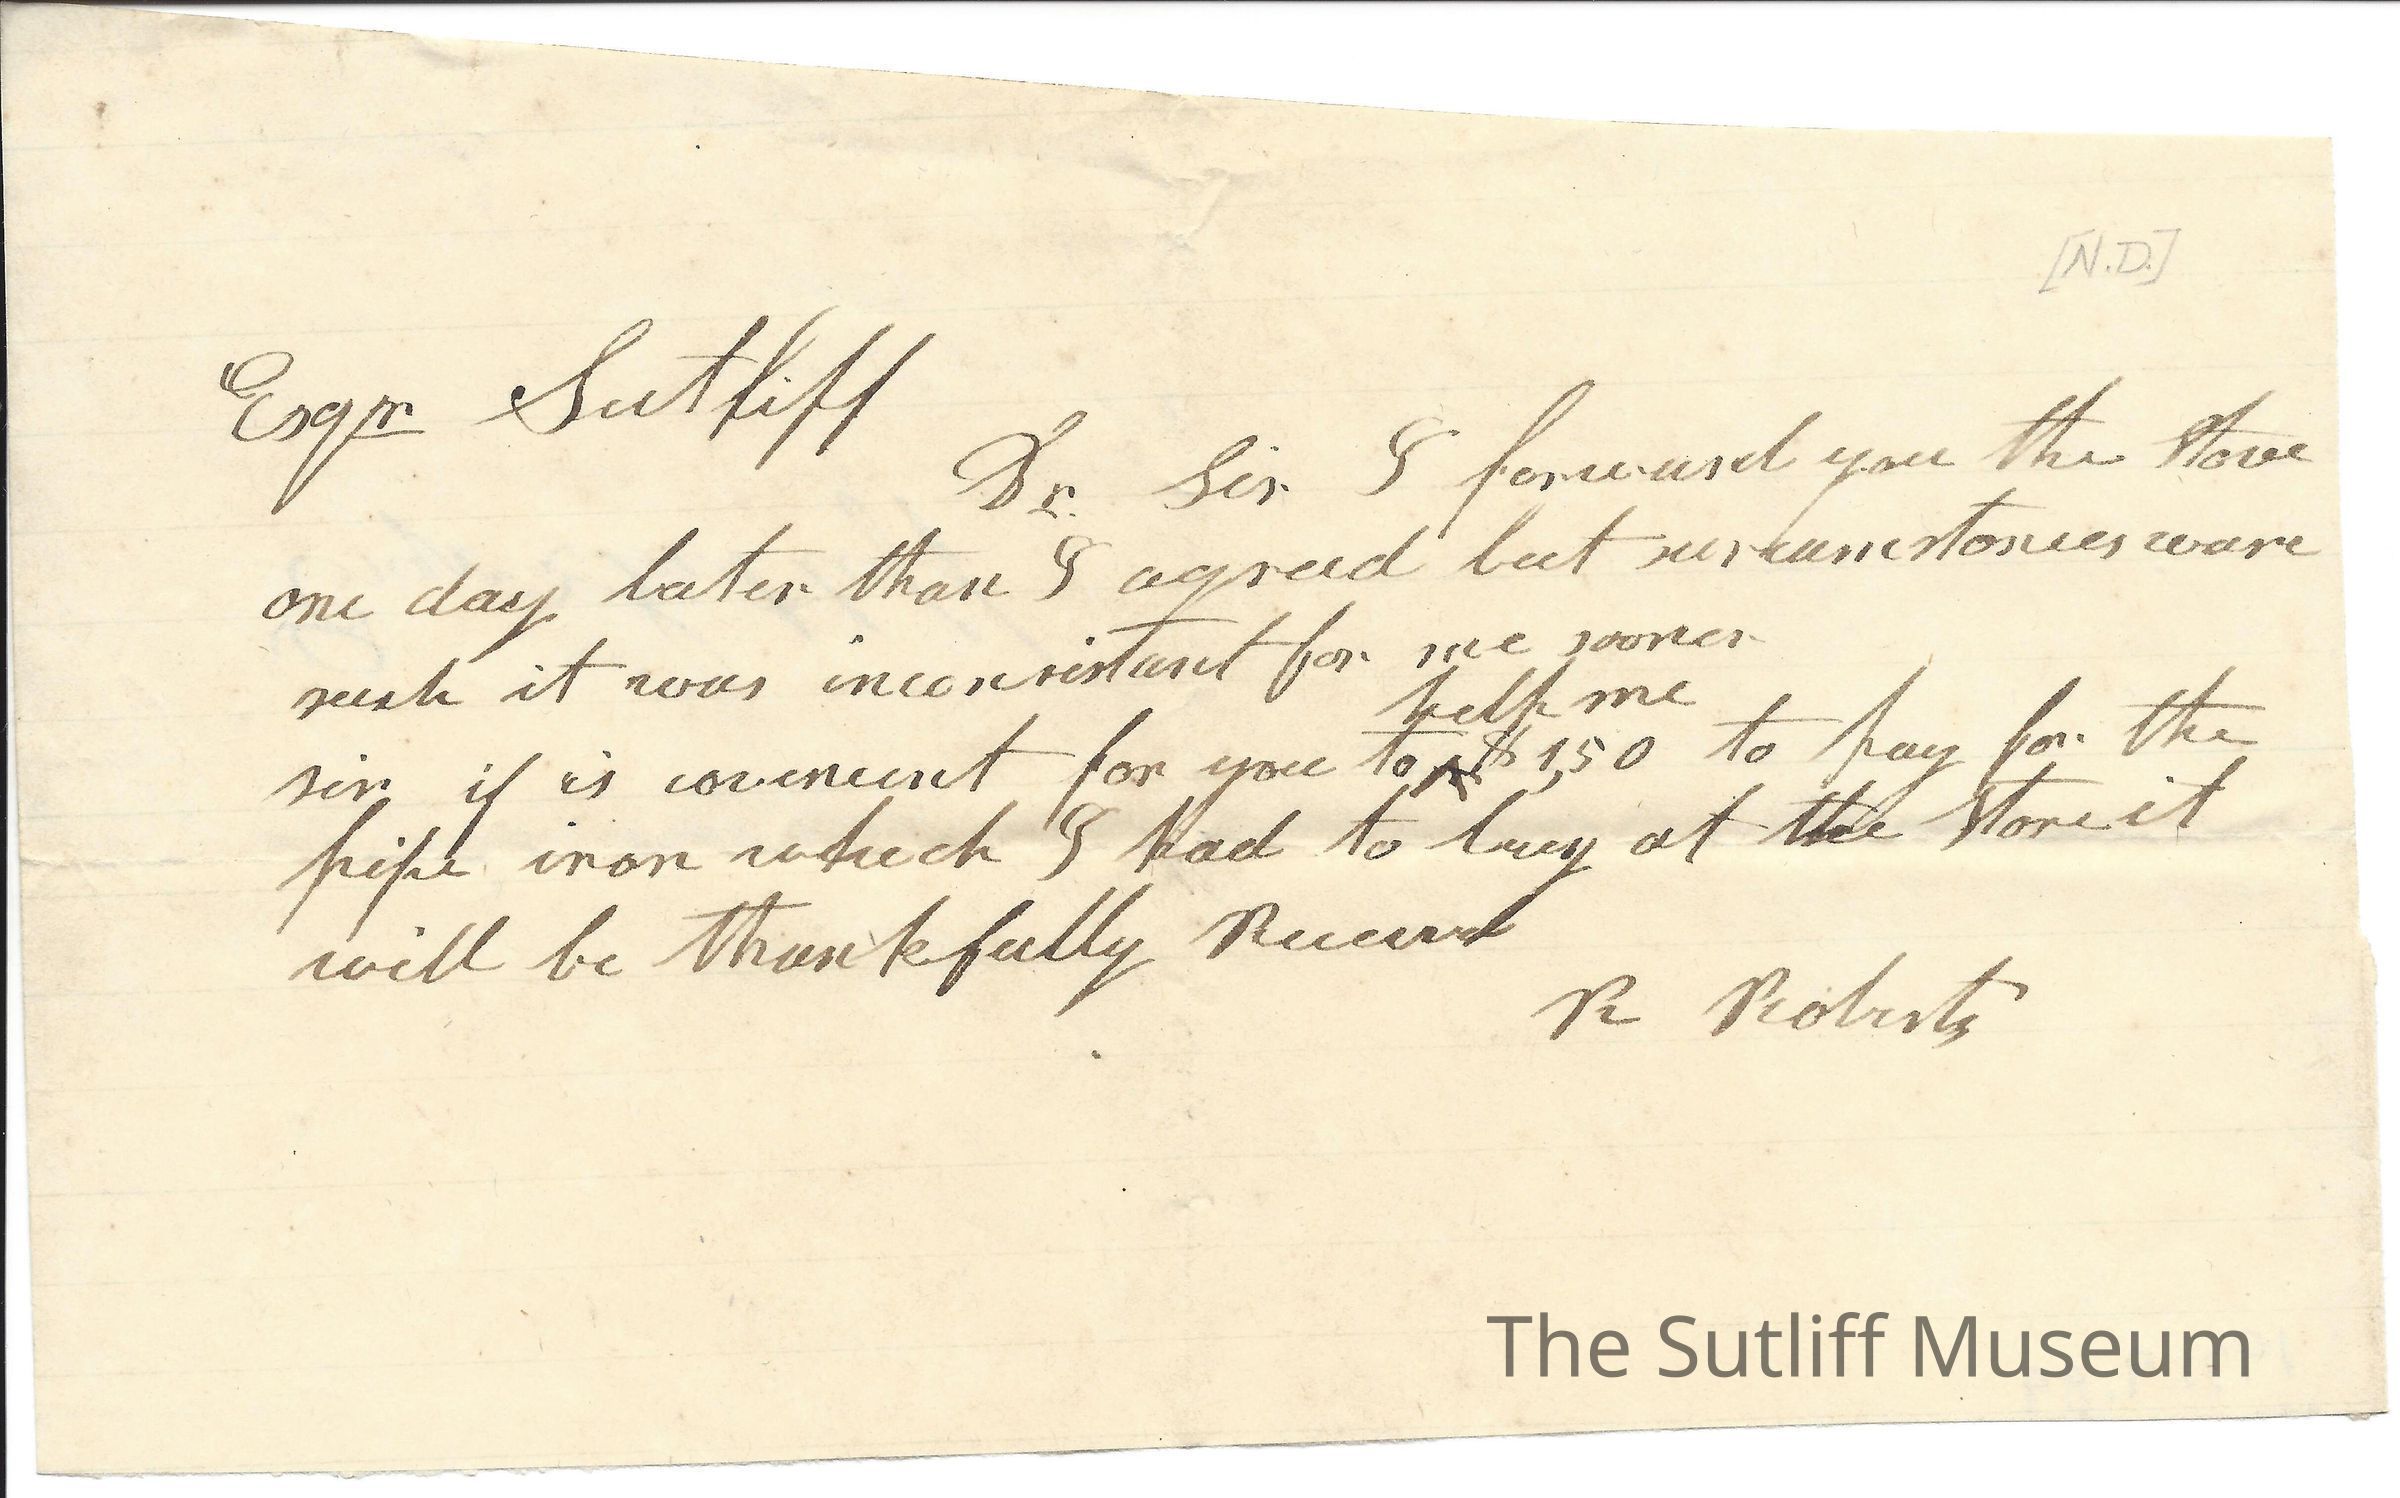 [N.D.]
Esqr Sutliff
Dr. Sir I forward you the stove
one day later than I agreed but sircumstances ware
such it was inconsistant for me sooner
help me
sir if is convenient for you to $1,50 to pay for the
pipe iron which I had to buy at the store it
will be thankfully Received
R Roberts
The Sutliff Museum